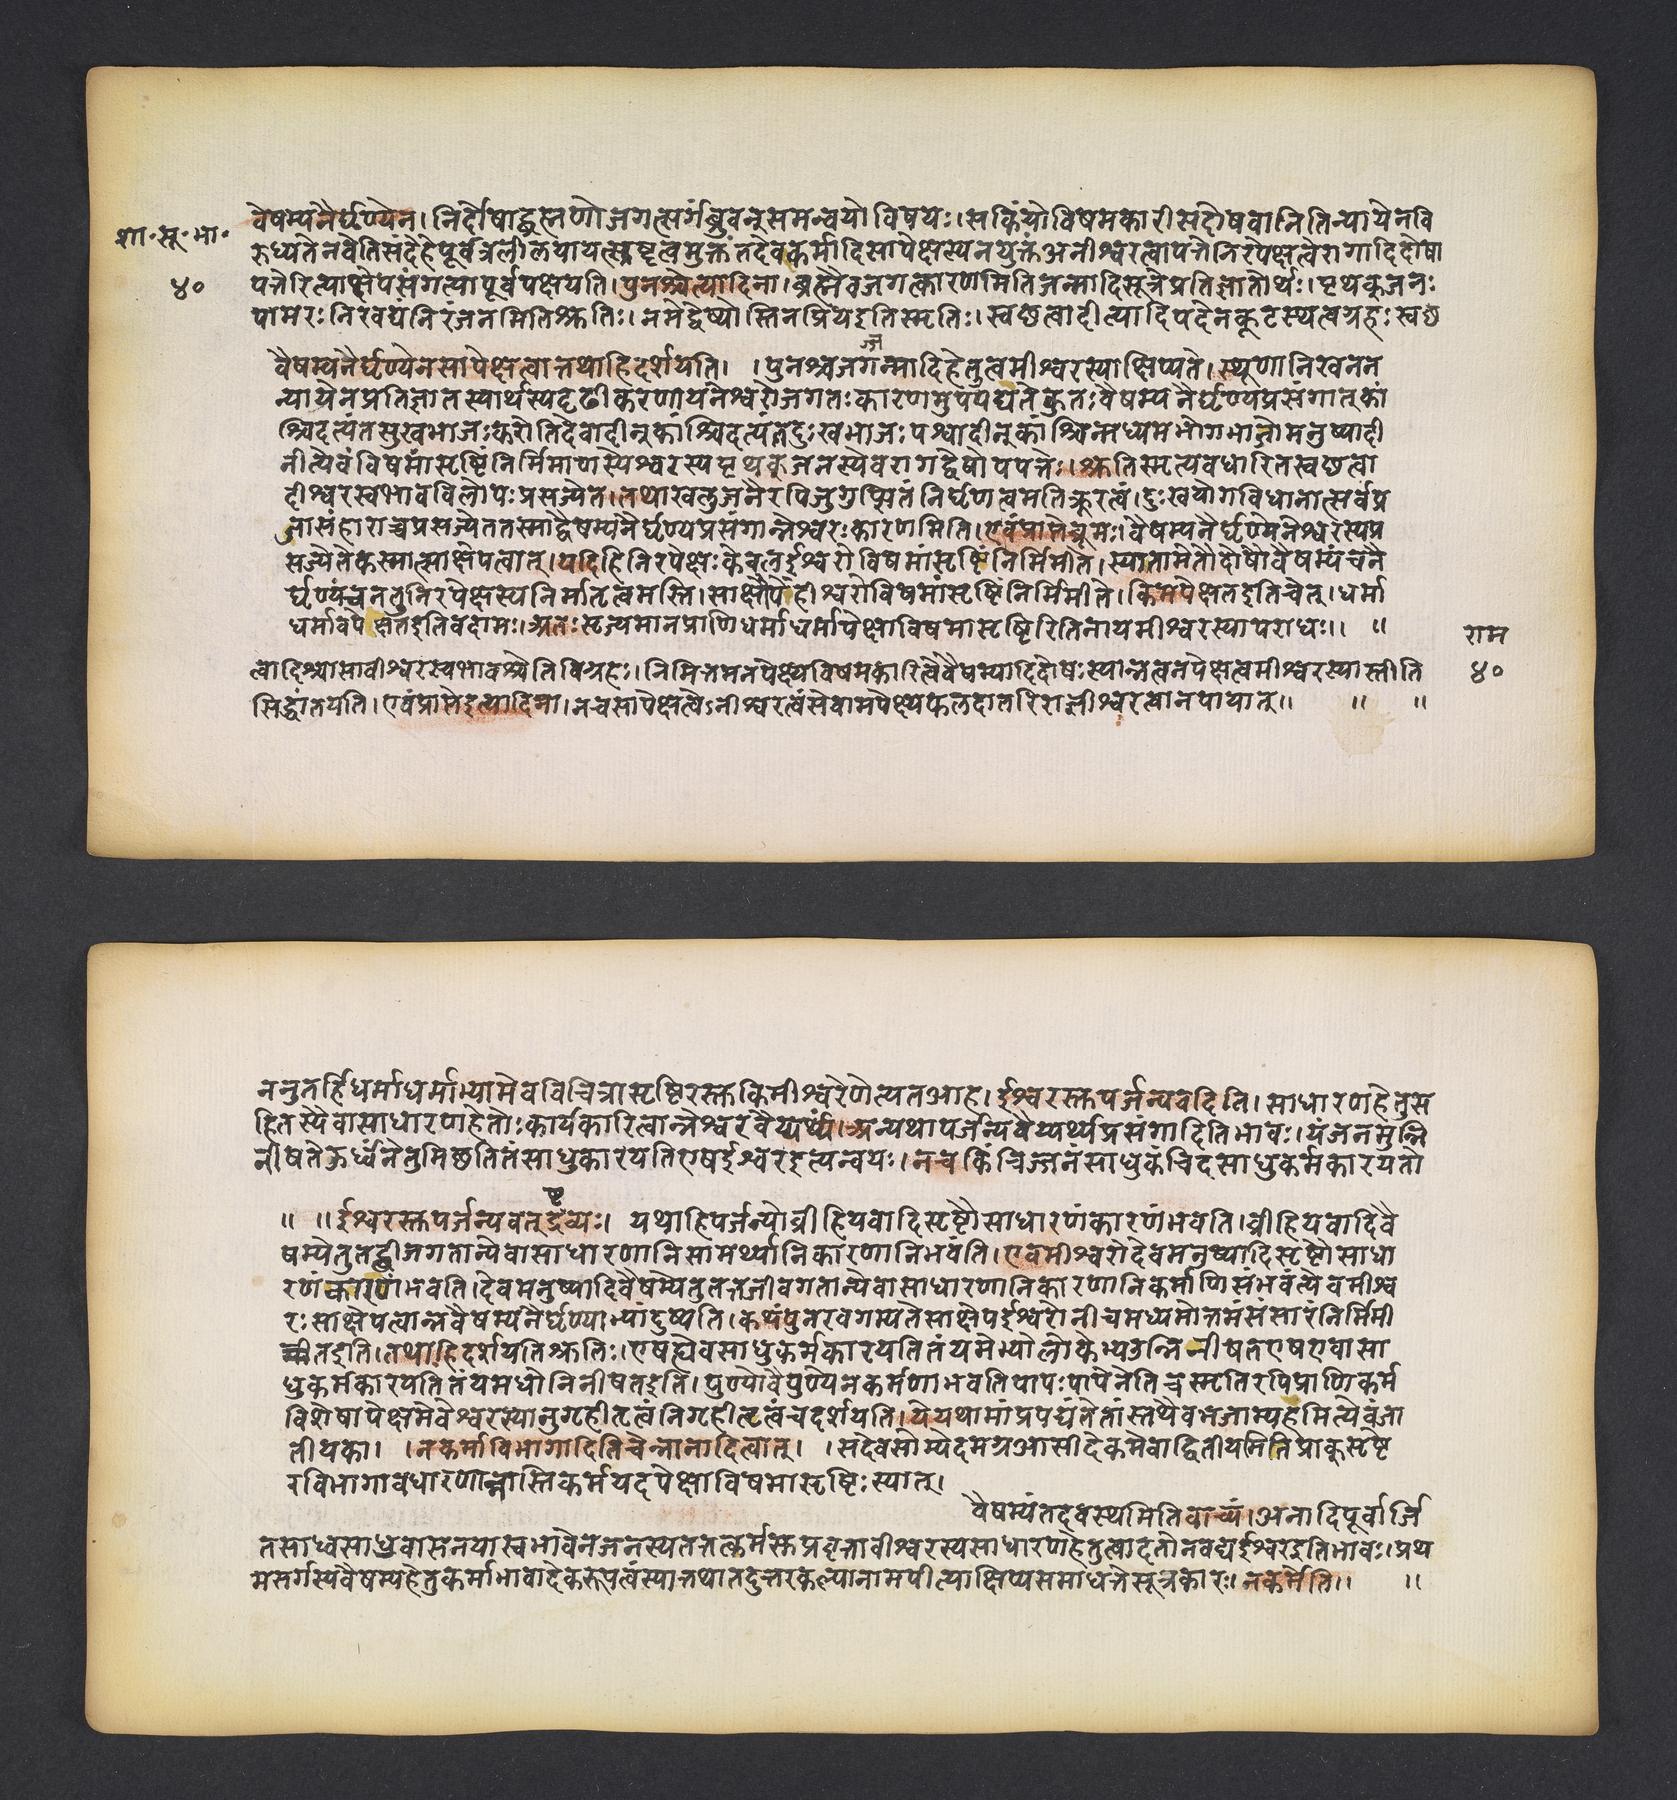 वैषम्यनैर्घृण्येन । निर्दोषाद्ब्रह्मणो जगत्सर्गंब्रुवन् समन्वयो विषयः । स किं यो विषमकारी स दोषवानिति न्यायेन वि
शा॰ सू॰ भा॰
रुध्यते न वेति संदेहे पूर्वत्र लीलया यत्स्रष्टृत्वमुक्तं तदेव कर्मादिसापेक्षस्य न युक्तं अनीश्वरत्वापत्तेः निरपेक्षत्वे रागादिदोषा
४०
पत्तेरित्याक्षेपसंगत्या पूर्वपक्षयति । पुनश्चेत्यादिना । ब्रह्मैव जगत्कारणमिति जन्मादिसूत्रे प्रतिज्ञातोर्थः । पृथक्जनः
पामरः निरवद्यं निरंजनमिति श्रुतिः । न मे द्वेष्योस्ति न प्रिय इति स्मृतिः । स्वच्छत्वादीत्यादिपदेन कूटस्थत्वग्रहः स्वच्छ
वैषम्यनैर्घृण्ये न सापेक्षत्वात्तथाहि दर्शयति । । पुनश्च जगज्जन्मादिहेतुत्वमीश्वरस्याक्षिप्यते । स्थूणानिखनन
न्यायेन प्रतिज्ञातस्यार्थस्य दृढीकरणाय नेश्वरो जगतः कारणमुपपद्यते कुतः वैषम्यनैर्घृण्यप्रसंगात् कां
श्चिदत्यंतसुखभाजः करोति देवादीन् कांश्चिदत्यंतदुःखभाजः पश्वादीन् कांश्चिन्मध्यमभोगभाजो मनुष्यादी
नीत्येवं विषमां सृष्टिं निर्मिमाणस्येश्वरस्य पृथक्जनस्येव रागद्वेषोपपत्तेः । श्रुतिस्मृत्यवधारितस्वच्छत्वा
दीश्वरस्वभावविलोपः प्रसज्येत । तथा खलुजनैरपि जुगुप्सितं निर्घृणत्वमतिक्रूरत्वं । दुःखयोगविधानात्सर्वप्र
जासंहाराच्च प्रसज्येत तस्माद्वैषम्यनैर्घृण्यप्रसंगान्नेश्वरः कारणमिति । एवं प्राप्ते ब्रूमः । वैषम्यनैर्घृण्ये नेश्वरस्य प्र
सज्येते कस्मात्साक्षेपत्वात् । यदि हि निरपेक्षः केवल ईश्वरो विषमां सृष्टिं निर्मिमीते । स्यातामेतौ दोषौ वैषम्यं च नै
र्घृण्यं च न तु निरपेक्षस्य निर्मातृत्वमस्ति । साक्षेपो हीश्वरो विषमां सृष्टिं निर्मिमीते । किमपेक्षत इति चेत् । धर्मा
धर्मावपेक्षत इति वदामः । अतः सृज्यमानप्राणिधर्माधर्मापेक्षा विषमा सृष्टिरिति नायमीश्वरस्यापराधः ।। ॥
राम
त्वादिश्चासावीश्वरस्वभावश्चेति विग्रहः । निमित्तमनपेक्ष्य विषमकारित्वे वैषम्यादिदोषः स्यान्न त्वनपेक्षत्वमीश्वरस्यास्तीति
४०
सिद्धांतयति । एवं प्राप्त इत्यादिना । न च सापेक्षत्वेऽनीश्वरत्वं सेवामपेक्ष्य फलदातरि राज्ञीश्वरत्वानपायात् ॥ ॥ ॥
ननु तर्हि धर्माधर्माभ्यामेव विचित्रा सृष्टिरस्तु किमीश्वरेणेत्यत आह । ईश्वरस्तु पर्जन्यवदिति । साधारणहेतुस
हितस्यैवासाधारणहेतोः कार्यकारित्वान्नेश्वरवैयर्थ्यं । अन्यथा पर्जन्यवैयर्थ्यप्रसंगादिति भावः । यं जनमुन्नि
नीषते ऊर्ध्वं नेतुमिच्छति तं साधु कारयति एष ईश्वर इत्यन्वयः । न च किंचिज्जनं साधु कंचिदसाधु कर्म कारयतो
॥ ॥ ईश्वरस्तु पर्जन्यवत् द्रष्टव्यः । यथा हि पर्जन्यो व्रीहियवादिसृष्टौ साधारणं कारणं भवति । व्रीहियवादिवै
षम्ये तु तद्बीजगतान्येवासाधारणानि सामर्थ्यानि कारणानि भवंति । एवमीश्वरो देवमनुष्यादिसृष्टौ साधा
रणं कारणं भवति । देवमनुष्यादिवैषम्ये तु तत्तज्जीवगतान्येवासाधारणानि कारणानि कर्माणि संभवंत्येवमीश्व
रः साक्षेपत्वान्न वैषम्यनैर्घृण्याभ्यां दुष्यति । कथं पुनरवगम्यते साक्षेप ईश्वरो नीचमध्यमोत्तमं संसारं निर्मिमी
त इति । तथा हि दर्शयति श्रुतिः । एष ह्येव साधु कर्म कारयति तं यमेभ्यो लोकेभ्य उन्निनीषत एष एवासा
धु कर्म कारयति तं यमधो निनीषत इति । पुण्यो वै पुण्येन कर्मणा भवति पापः पापेनेति च स्मृतिरपि प्राणिकर्म
विशेषापेक्षमेवेश्वरस्यानुगृहीतृत्वं निगृहीतृत्वं च दर्शयति । ये यथा मां प्रपद्यंते तांस्तथैव भजाम्यहमित्येवंजा
तीयका । । न कर्माविभागादिति चेन्नानादित्वात् । । सदेव सोम्येदमग्र आसीदेकमेवाद्वितीयमिति प्राक् सृष्टे
रविभागावधारणान्नास्ति कर्म यदपेक्षा विषमा सृष्टिः स्यात् ।
वैषम्यं तदवस्थमिति वाच्यं । अनादिपूर्वार्जि
तसाध्वसाधुवासनया स्वभावेन जनस्य तत्तत्कर्मसु प्रवृत्तावीश्वरस्य साधारणहेतुत्वादतोनवद्य ईश्वर इति भावः । प्रथ
मसर्गस्य वैषम्यहेतुकर्माभावादेकरूपत्वं स्यात्तथा तदुत्तरकल्पानामपीत्याक्षिप्य समाधत्ते सूत्रकारः । न कर्मेति ।। ॥